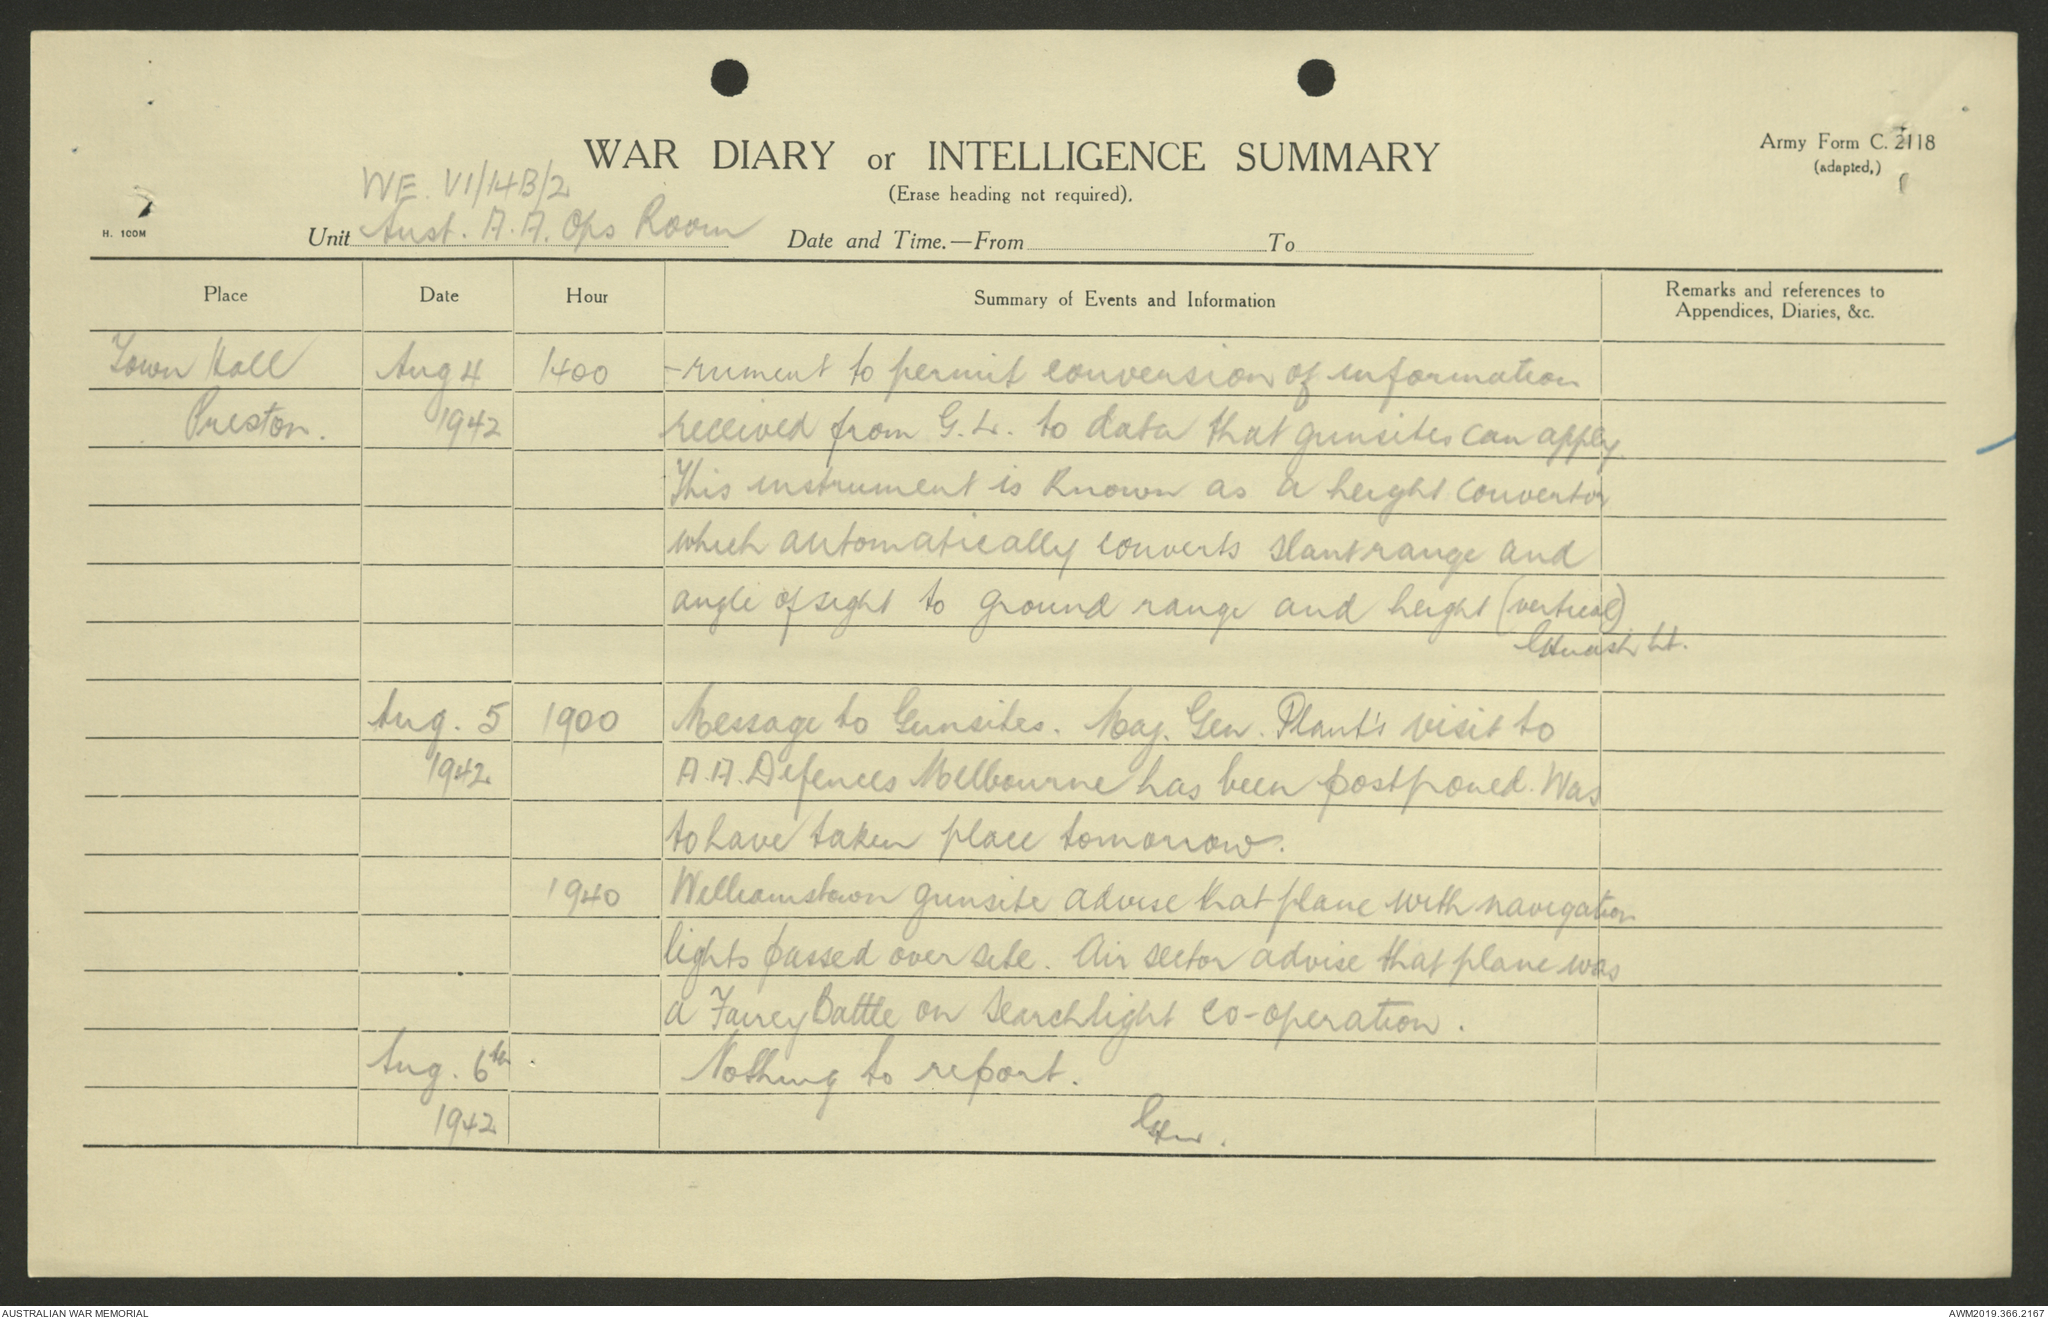 Army Form C. 2118
(adapted,)
WAR DIARY or INTELLIGENCE SUMMARY
(Erase heading not required).
WE. VI/14B/2
H. 100M
Unit Aust. A.A. Ops Room Date and Time.—From To
Place Date Hour Summary of Events and Information Remarks and references to
Appendices, Diaries, &c.
Town Hall Aug 4 1400 -rument to permit conversion of information
Preston. 1942 received from G.L. to data that gunsites can apply.
This instrument is known as a height convertor
which automatically converts slant range and
angle of sight to ground range and height (vertical)
Lt.
Aug. 5 1900 Message to Gunsites. Maj. Gen. Plant's visit to
1942 A.A. Defences Melbourne has been postponed. Was
to have taken place tomorrow.
1940 Williamstown gunsite advise that plane with navigation
lights passed over site. Air sector advise that plane was
a Fairey Battle on searchlight co-operation.
Aug. 6th Nothing to report.
1942
AUSTRALIAN WAR MEMORIAL AWM2019.366.2167